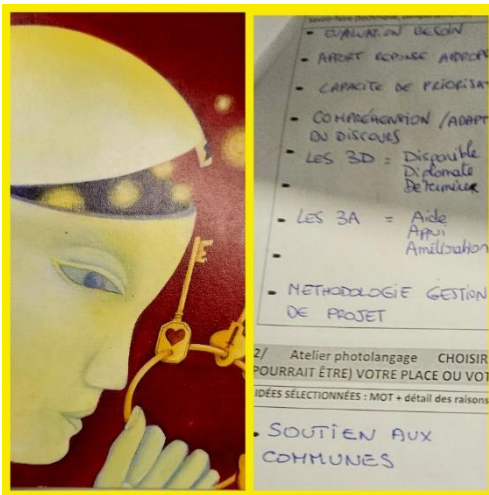 - EVALUATION BESOIN
- APPORT REPONSE
- CAPACITE DE
- COMPRÉHENSION /
DU DISCOURS
- LES 3D : Disponible
Diplomate
- LES 3A = Aide
Appui
Amélioration
- METHODOLOGIE GESTION
DE PROJET
2/ Atelier photolangage CHOISIR
POURRAIT ÊTRE) VOTRE PLACE OU
IDÉES SÉLECTIONNÉES : MOT + détail des raisons
• SOUTIEN AUX
COMMUNES